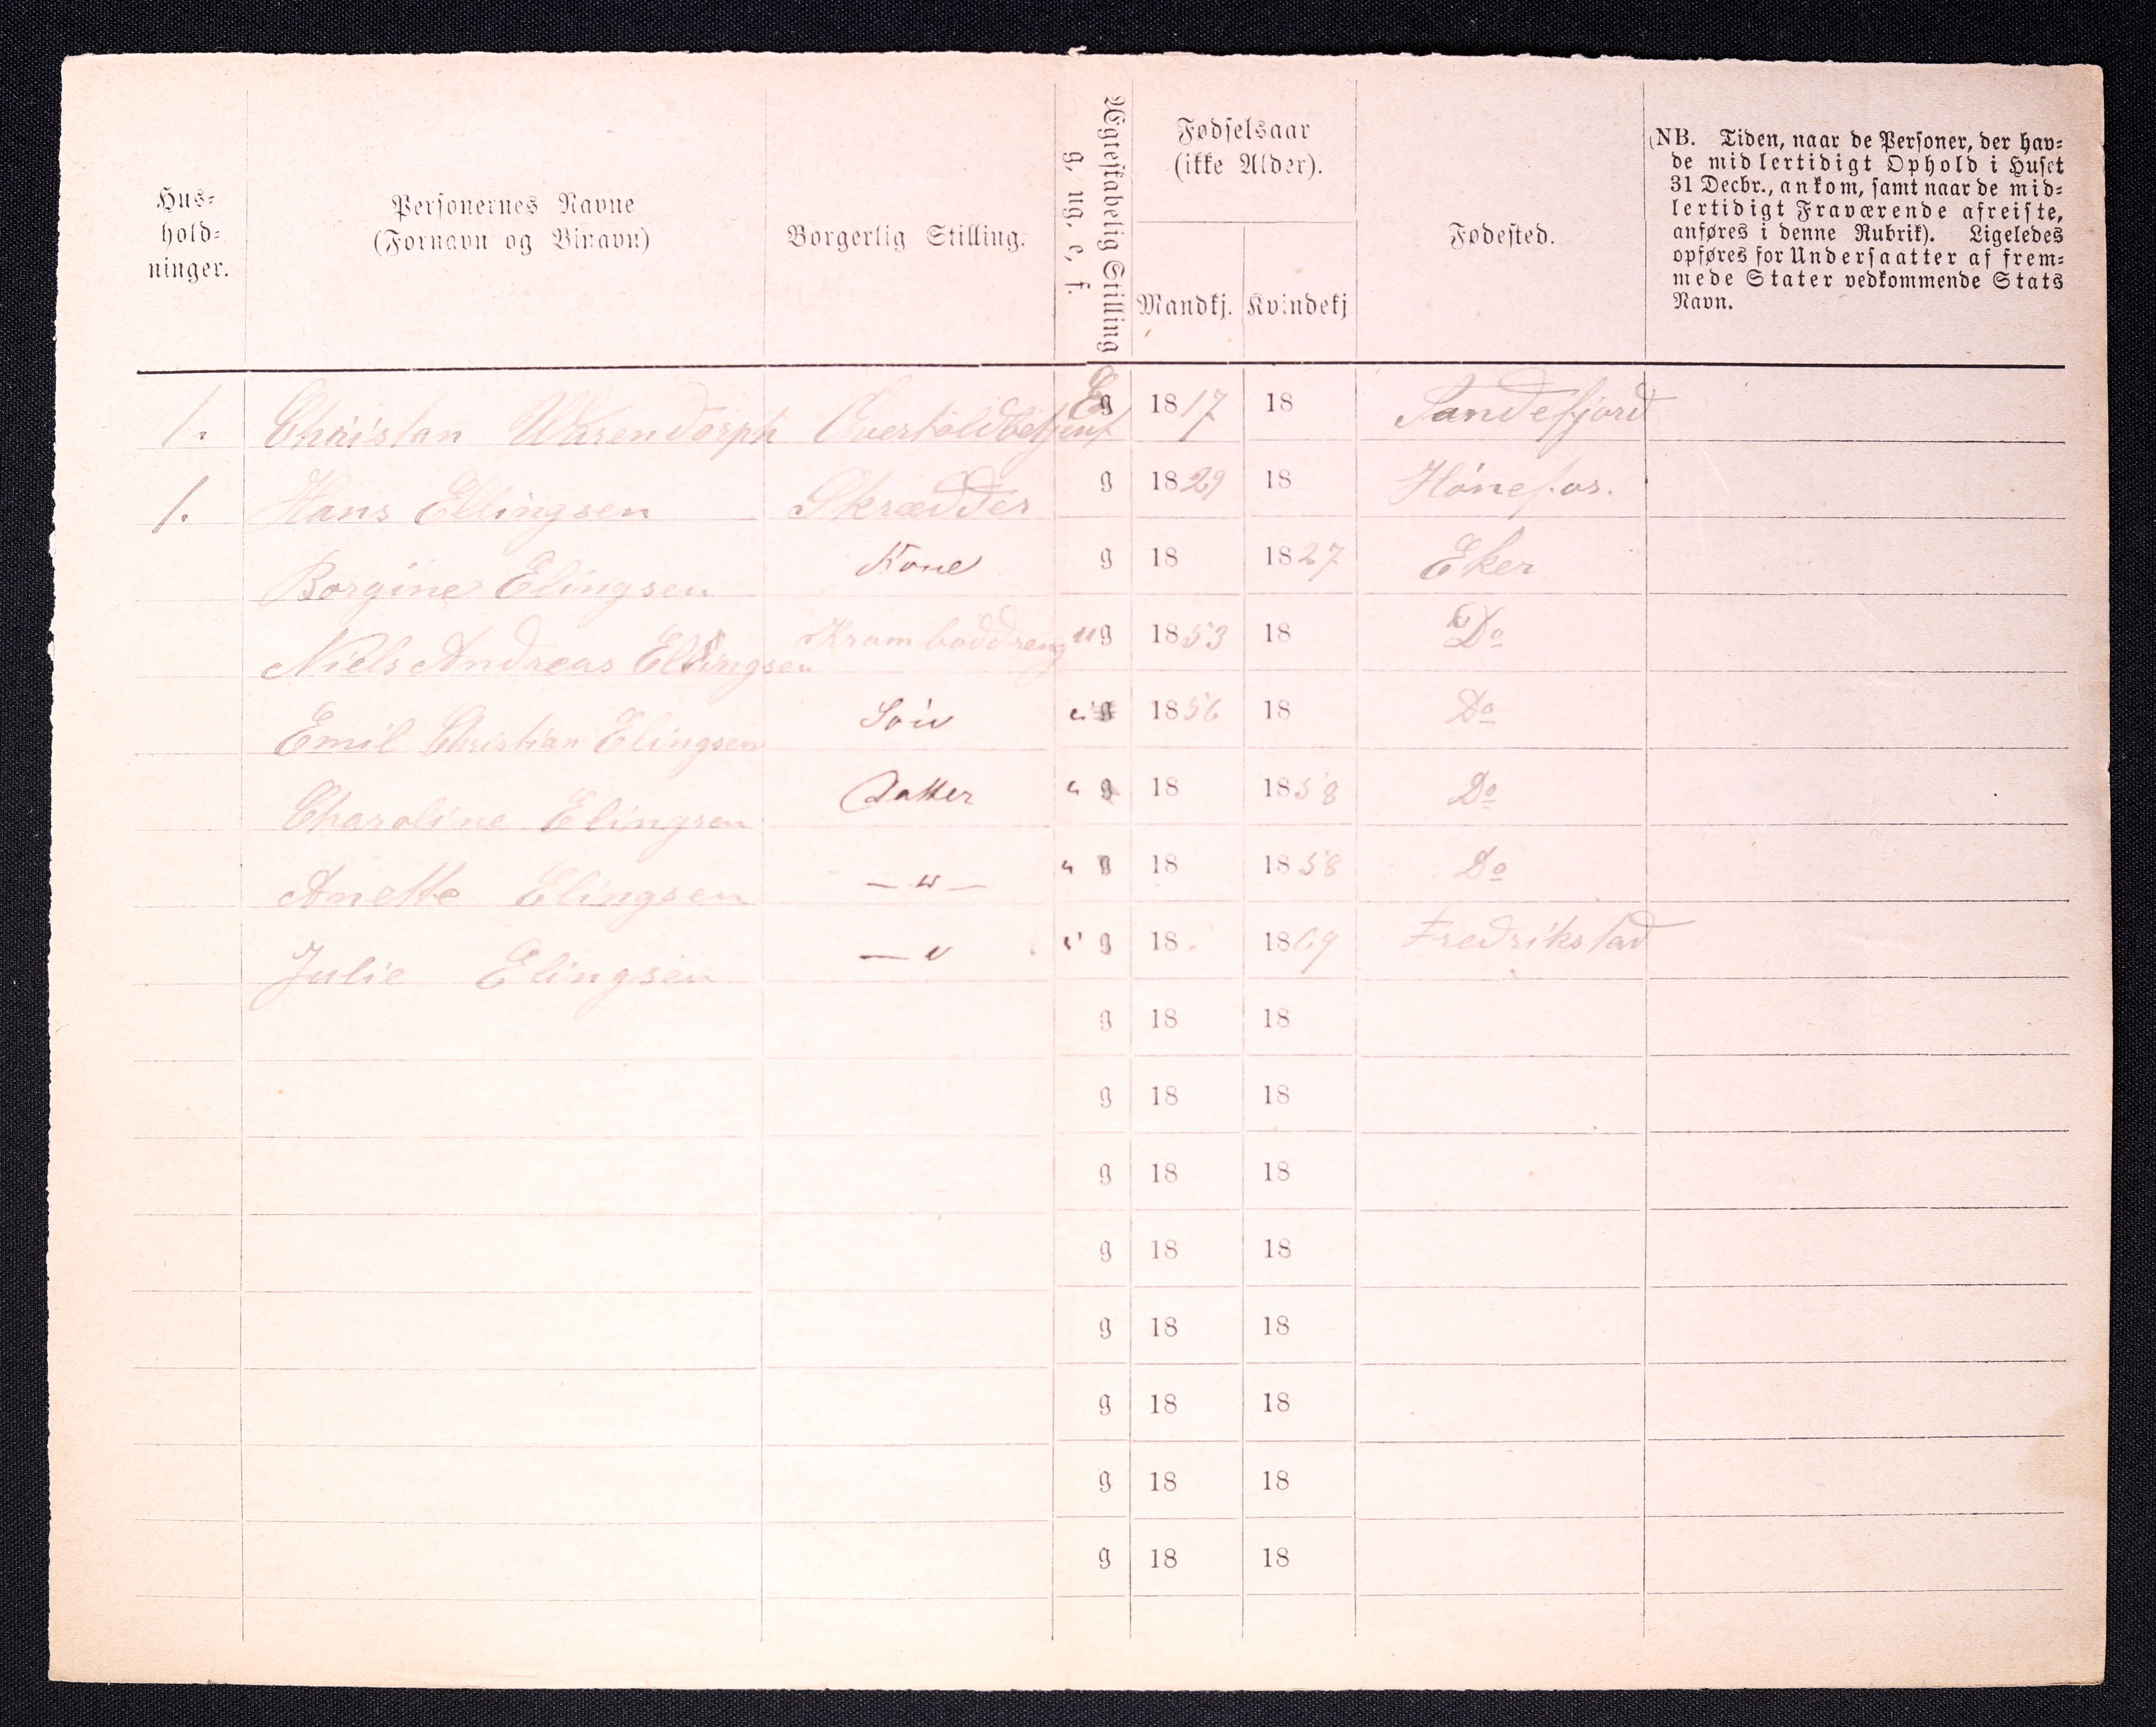 Hus-
hold-
ninger.
Personernes Navne
(Fornavn og Binavn)
Borgerlig Stilling.
Ægteskabelig Stilling
g, ug, e, f.
Fødselsaar
(ikke Alder).
Mandkj. Kvindekj
Fødested.
(NB. Tiden, naar de Personer, der hav-
de midlertidigt Ophold i Huset
31 Decbr., ankom, samt naar de mid-
lertidigt Fraværende afreiste,
anføres i denne Rubrik). Ligeledes
opføres for Undersaatter af frem-
mede Stater vedkommende Stats
Navn.
1. Christan Warendorph Overtoldbetjent E g 1817 18 Sandefjord
1. Hans Ellingsen Skrædder g 1829 18 Hónefos.
Borgine Elingsen Kone g 18 1827 Eker
Niels Andreas Ellingsen Kramboddreng ug 1853 18 Do
Emil Christian Elingsen Sön u g 1856 18 Do
Charoline Elingsen Datter u g 18 1858 Do
Anette Elingsen — " — u g 18 1858 Do
Julie Elingsen — " u g 18 1869 Fredrikstad
g 18 18
g 18 18
g 18 18
g 18 18
g 18 18
g 18 18
g 18 18
g 18 18